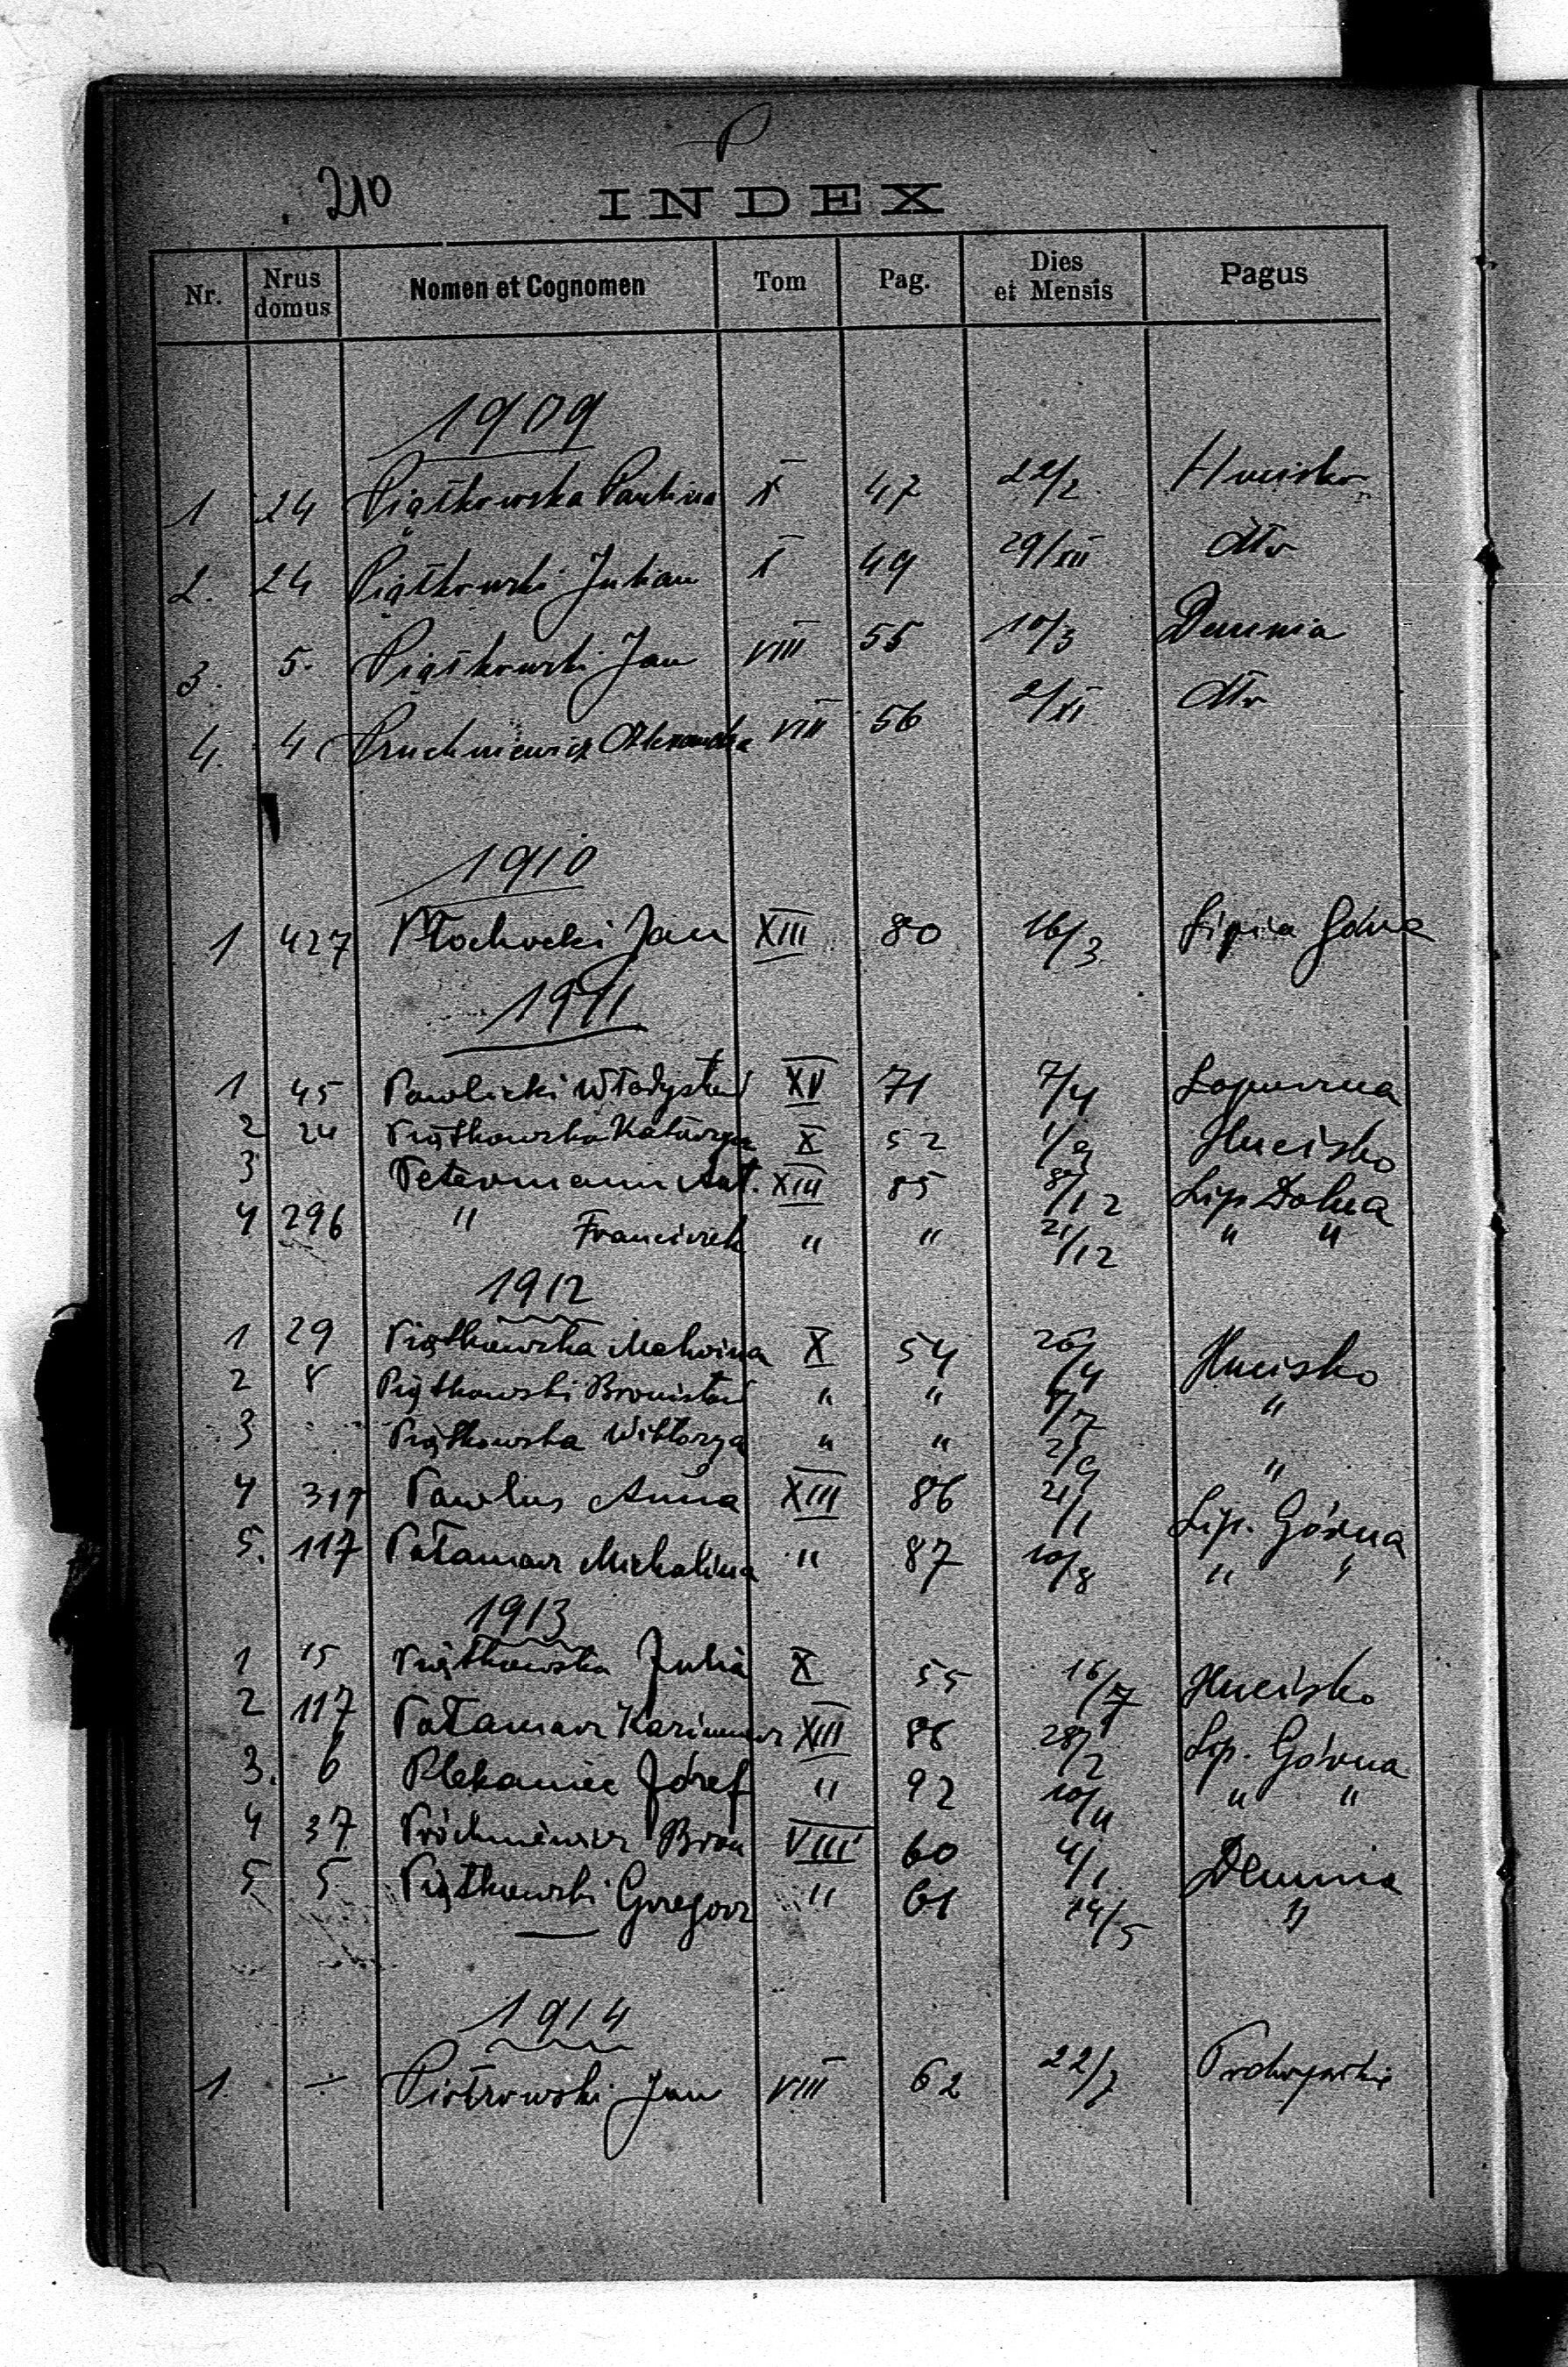 P
210
INDEX
Nr. Nrus domus Nomen et Cognomen Tom Pag. Dies et Mensis Pagus
1909
1 24 Piątkowska Paulina X 47 22/2 Hucisko
2. 24 Piątkowski Julian X 49 29/XII dtto
3. 5. Piątkowski Jan VIII 55 10/3 Demnia
4. 4 Pruchniewicz Aleksandra VIII 56 2/XI dtto
1910
1 427 Płochocki Jan XIII 80 16/3 Lipica Górna
1911
1 45 Pawlicki Władysław XV 71 7/4 Lopuszna
2 24 Piątkowska Katarzyna X 52 1/9 Hucisko
3 Petermann Ant. XIII 85 8/12 Lip Dolna
4 296 " Franciszek " " 21/12 " "
1912
1 29 Piątkowska Malwina X 54 20/4 Hucisko
2 8 Piątkowski Bronisław " " /7 "
3 Piątkowska Wiktorya " " 2/9 "
4 317 Pawlus Anna XIII 86 21/1 Lip. Górna
5. 117 Pałamarz Michalina " 87 10/8 " "
1913
1 15 Piątkowska Julia X 55 16/7 Hucisko
2 117 Pałamarz Kazimierz XIII 88 28/2 Lip. Górna
3. 6 Plekaniec Józef " 92 10/11 " "
4 37 Próchniewicz Bron VIII 60 4/1 Demnia
5 5 Piątkowski Grzegorz " 61 14/5 "
1914
1. ÷ Piotrowski Jan VIII 62 22/7